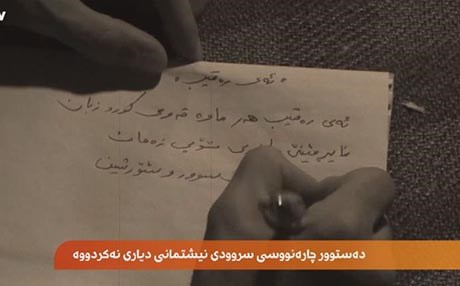 « ئەی رەقیب »
ئەی رەقیب هەر ماوە قەومی کورد زبان
تۆپی زەمان
سوور و شۆرشین
دەستوور چارەنووسی سروودی نیشتمانی دیاری نەکردووە